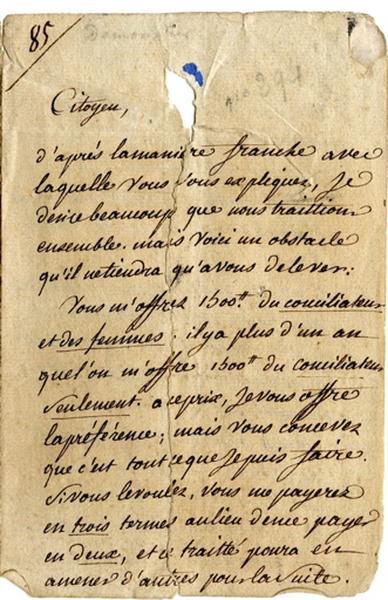 85
Citoyen,
d'après lamanière franche avec
laquelle vous vous expliquez, Je
désire beaucoup que nous traittions
ensemble. mais voici un obstacle
qu'il ne tiendra qu'a vous de lever:
Vous m'offrez 1500# du conciliateur
et des femmes. il y a plus d'un an
quel'on m'offre 1500# du conciliateur
seulement. a ceprix, Je vous offre
lapréférence; mais vous concevez
que c'est tout ce que Je puis faire.
Si vous levoulez, vous me payerez
en trois termes aulieu deme payer
en deux, et ce traitté poura en
amener d'autres pour la suite.